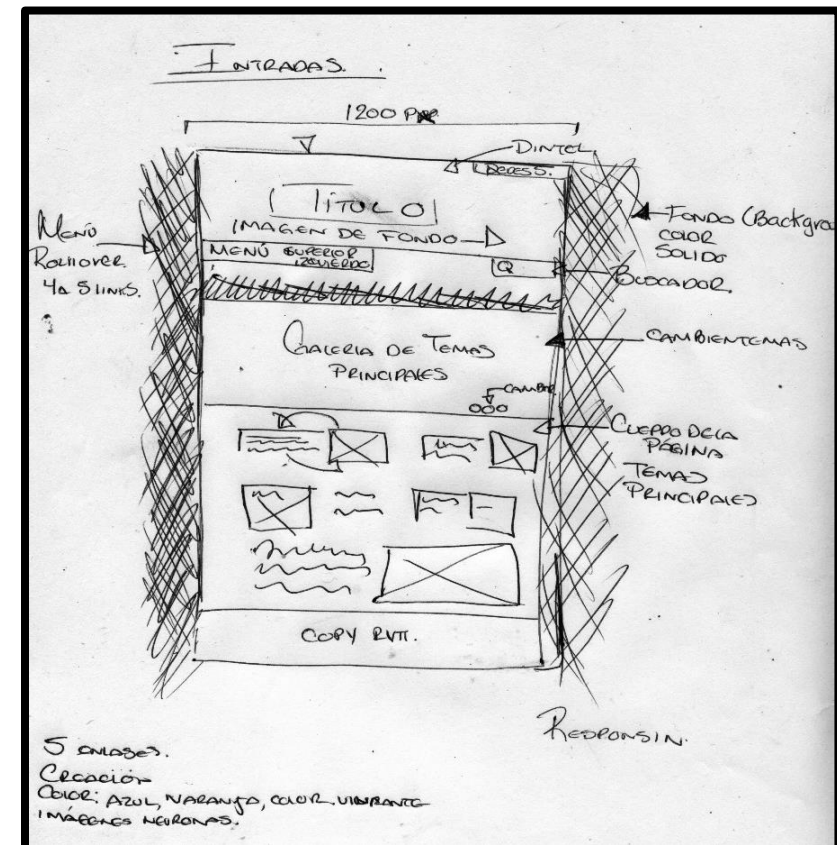 INTRADAS.
1200 Px
DINTEL
REDES S.
TÍTULO
IMAGEN DE FONDO
MENÚ SUPERIOR
IZQUIERDO
Q
MENÚ
ROLLOVER
4 a 5 LINKS.
FONDO (Backgrou
COLOR
SOLIDO
BUSCADOR.
GALERIA DE TEMAS
PRINCIPALES
CAMBIENTEMAS
CAMBIO
CUERPO DE LA
PÁGINA
TEMAS
PRINCIPALES
COPY
RESPONSIN.
5 ENLASES.
CREACIÓN
COLOR: AZUL, NARANJA, COLOR VIBRANTE
IMÁGENES NEURONAS.